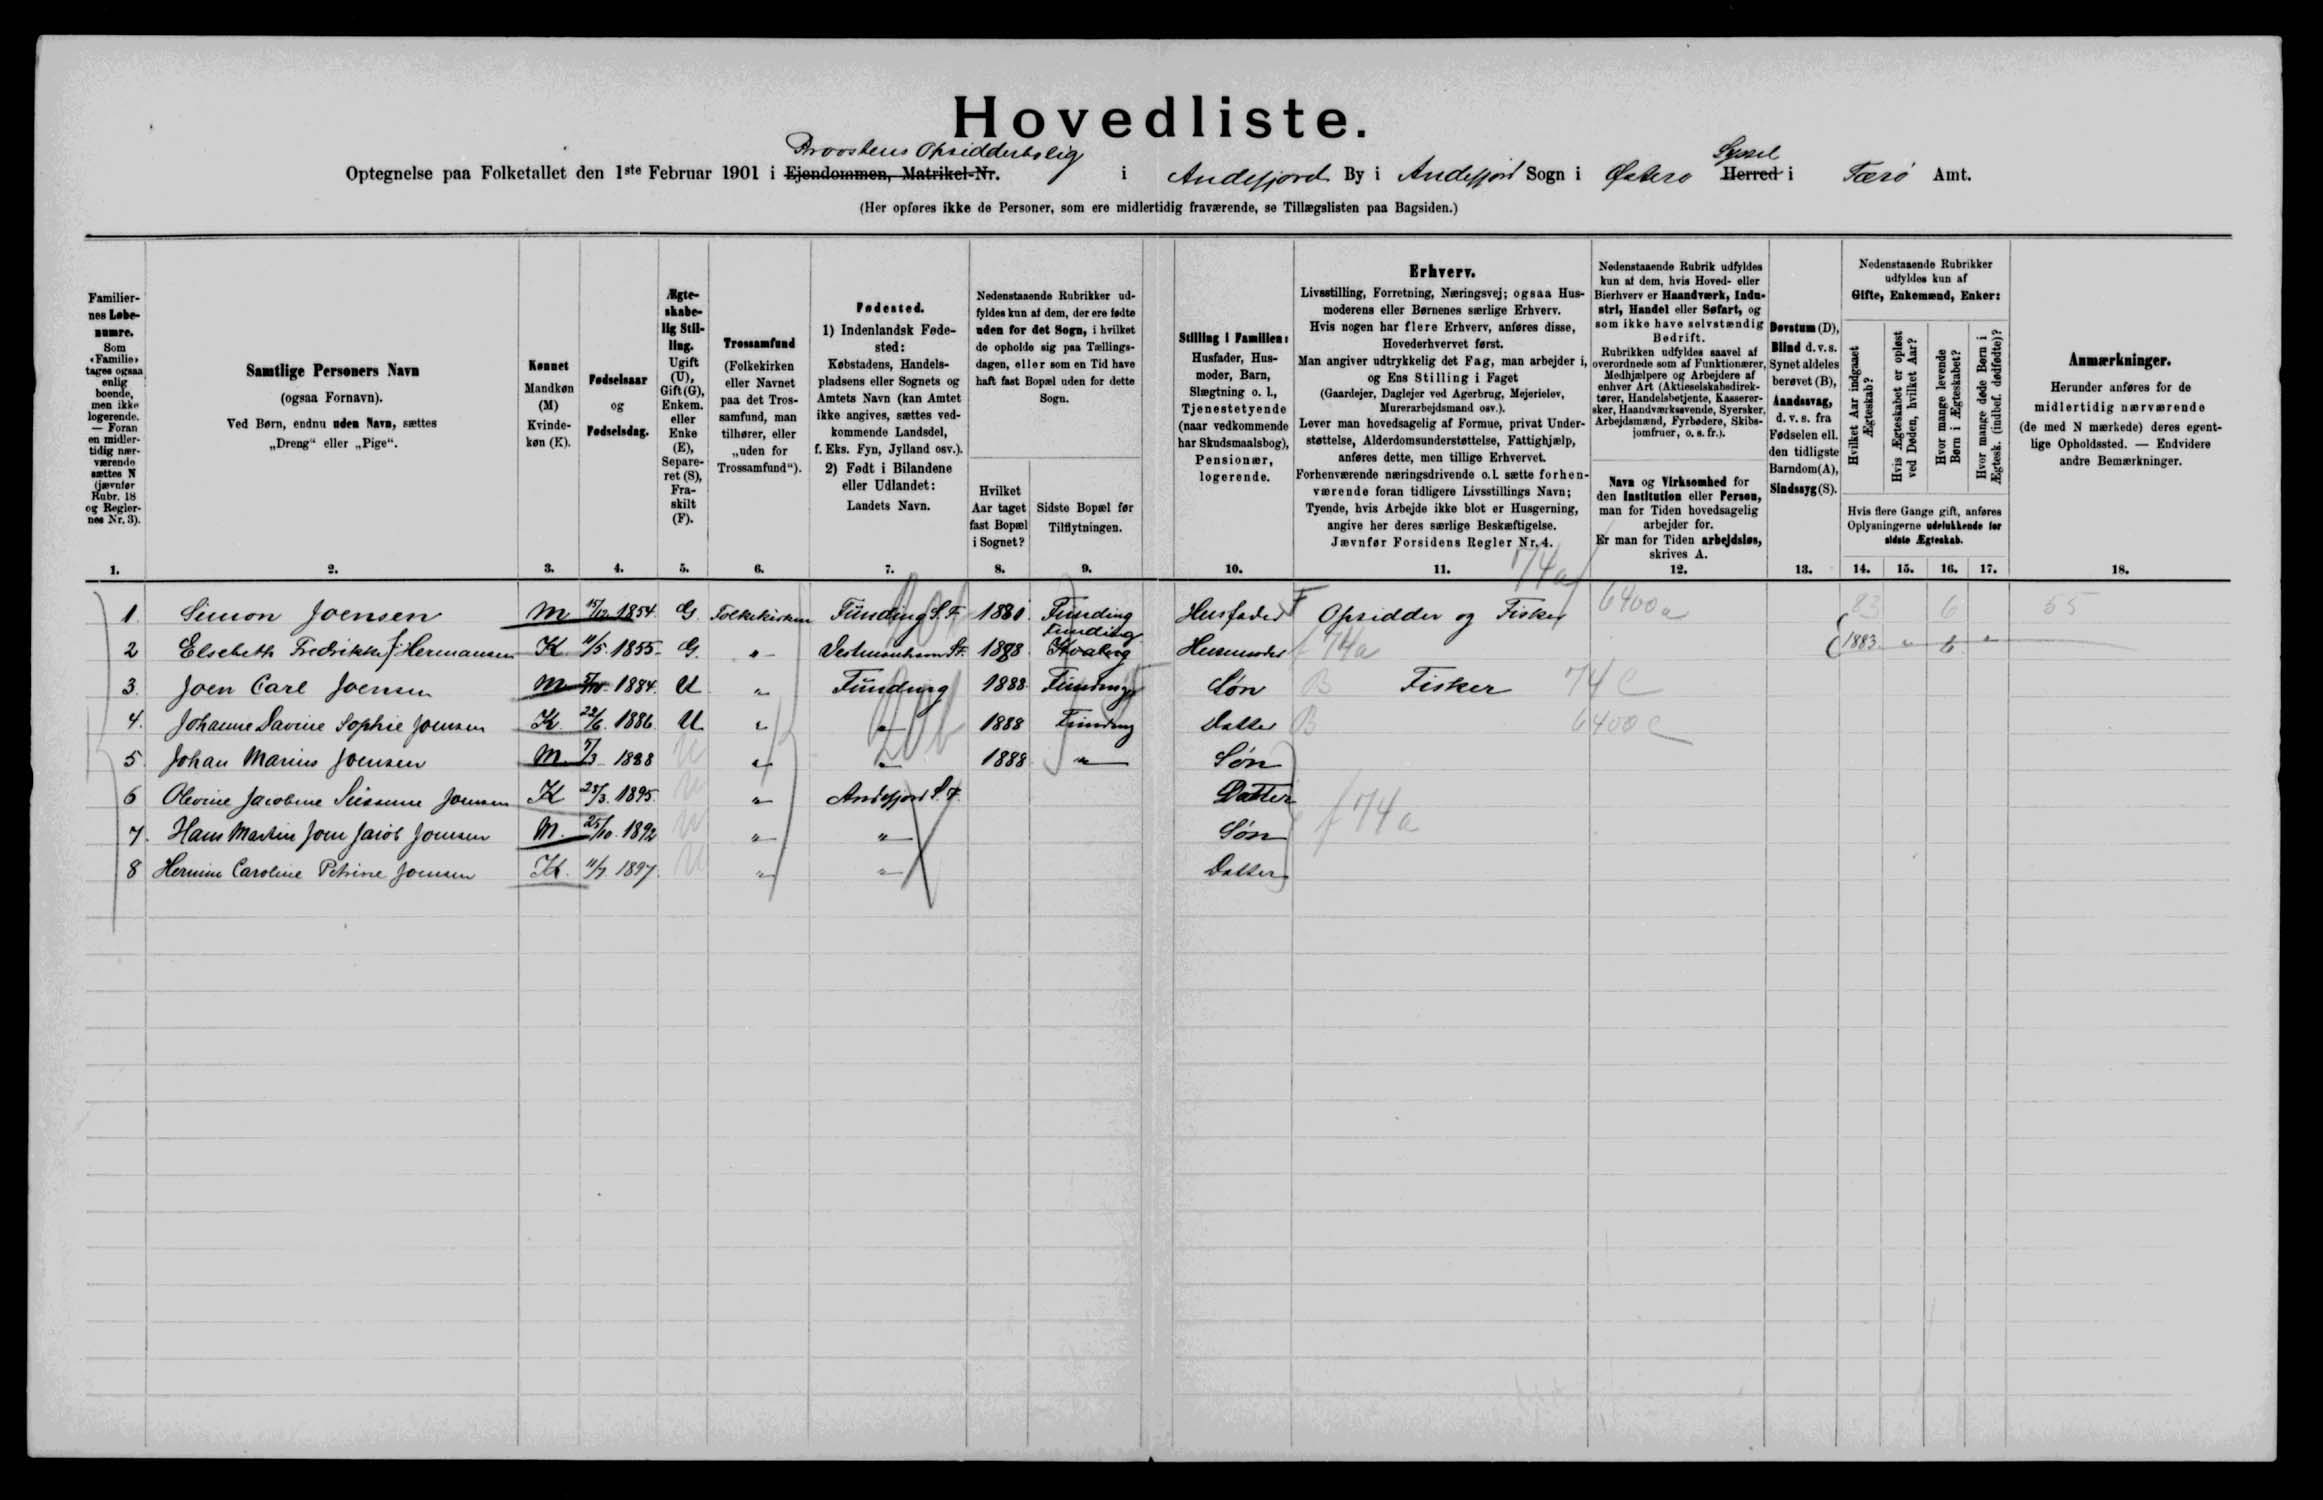 Hovedliste.
Provstens Opsidderbolig
Syssel
Optegnelse paa Folketallet den 1ste Februar 1901 i Ejendommen, Matrikel-Nr. i Andefjord By i Andefjord Sogn i Østerø Herred i Færø Amt.
(Her opføres ikke de Personer, som ere midlertidig fraværende, se Tillægslisten paa Bagsiden.)
Familier-
nes Løbe-
numre.
Som
«Familie»
tages ogsaa
enlig
boende,
men ikke
logerende.
— Foran
en midler-
tidig nær-
værende
sættes N
(jævnfør
Rubr. 18
og Regler-
nes Nr. 3).
1.
Samtlige Personers Navn
(ogsaa Fornavn).
Ved Børn, endnu uden Navn, sættes
„Dreng“ eller „Pige“.
2.
Kønnet
Mandkøn
(M)
Kvinde-
køn (K).
3.
Fødselsaar
og
Fødselsdag.
4.
Ægte-
skabe-
lig Stil-
ling.
Ugift
(U),
Gift (G),
Enkem.
eller
Enke
(E),
Separe-
ret (S),
Fra-
skilt
(F).
5.
Trossamfund
(Folkekirken
eller Navnet
paa det Tros-
samfund, man
tilhører, eller
„uden for
Trossamfund“).
6.
Fødested.
1) Indenlandsk Føde-
sted:
Købstadens, Handels-
pladsens eller Sognets og
Amtets Navn (kan Amtet
ikke angives, sættes ved-
kommende Landsdel,
f. Eks. Fyn, Jylland osv.).
2) Født i Bilandene
eller Udlandet:
Landets Navn.
7.
Nedenstaaende Rubrikker ud-
fyldes kun af dem, der ere fødte
uden for det Sogn, i hvilket
de opholde sig paa Tællings-
dagen, eller som en Tid have
haft fast Bopæl uden for dette
Sogn.
Hvilket
Aar taget
fast Bopæl
i Sognet?
8.
Sidste Bopæl før
Tilflytningen.
9.
Stilling i Familien:
Husfader, Hus-
moder, Barn,
Slægtning o. l.,
Tjenestetyende
(naar vedkommende
har Skudsmaalsbog),
Pensionær,
logerende.
10.
Erhverv.
Livsstilling, Forretning, Næringsvej; ogsaa Hus-
moderens eller Børnenes særlige Erhverv.
Hvis nogen har flere Erhverv, anføres disse,
Hovederhvervet først.
Man angiver udtrykkelig det Fag, man arbejder i,
og Ens Stilling i Faget
(Gaardejer, Daglejer ved Agerbrug, Mejerielev,
Murerarbejdsmand osv.).
Lever man hovedsagelig af Formue, privat Under-
støttelse, Alderdomsunderstøttelse, Fattighjælp,
anføres dette, men tillige Erhvervet.
Forhenværende næringsdrivende o. l. sætte forhen-
værende foran tidligere Livsstillings Navn;
Tyende, hvis Arbejde ikke blot er Husgerning,
angive her deres særlige Beskæftigelse.
Jævnfør Forsidens Regler Nr. 4.
11.
Nedenstaaende Rubrik udfyldes
kun af dem, hvis Hoved- eller
Bierhverv er Haandværk, Indu-
stri, Handel eller Søfart, og
som ikke have selvstændig
Bedrift.
Rubrikken udfyldes saavel af
overordnede som af Funktionærer,
Medhjælpere og Arbejdere af
enhver Art (Aktieselskabsdirek-
tører, Handelsbetjente, Kasserer-
sker, Haandværkssvende, Syersker,
Arbejdsmænd, Fyrbødere, Skibs-
jomfruer, o. s. fr.).
Navn og Virksomhed for
den Institution eller Person,
man for Tiden hovedsagelig
arbejder for.
Er man for Tiden arbejdsløs,
skrives A.
12.
Døvstum (D),
Blind d. v. s.
Synet aldeles
berøvet (B),
Aandssvag,
d. v. s. fra
Fødselen ell.
den tidligste
Barndom (A),
Sindssyg (S).
13.
Nedenstaaende Rubrikker
udfyldes kun af
Gifte, Enkemænd, Enker:
Hvilket Aar indgaaet
Ægteskab?
Hvis Ægteskabet er opløst
ved Døden, hvilket Aar?
Hvor mange levende
Børn i Ægteskabet?
Hvor mange døde Børn i
Ægtesk. (indbef. dødfødte)?
Hvis flere Gange gift, anføres
Oplysningerne udelukkende for
sidste Ægteskab.
14. 15. 16. 17.
Anmærkninger.
Herunder anføres for de
midlertidig nærværende
(de med N mærkede) deres egent-
lige Opholdssted. — Endvidere
andre Bemærkninger.
18.
174a
1 Simon Joensen M 15/12 1854 G. Folkekirken Funding S. F. 1880 Funding Husfader F Opsidder og Fisker 6400a 83 6 55
Funding
2 Elsebeth Fredrikke f. Hermansen K 11/5 1855 G. " 1888 Husmoder f 74a 1883 " 6 "
3. Joen Carl Joensen M 1884 U " Funding 1888 Funding Søn B Fisker 74 C
4. Johanne Davine Sophie Joensen K. 22/6 1886 U " " 1888 Funding Datter B 6400 C
5 Johan Marius Joensen M 5/3 1888 U " " 1888 " Søn
6 Olevine Jacobine Susanne Joensen K 28/3 1895 U " Andefjord S. F. Datter
7. Hans Martin Joen Jacob Joensen M. 25/10 1892 U " " Søn f 74a
8 Hermine Caroline Petrine Joensen K. 11/7 1897 U " " Datter